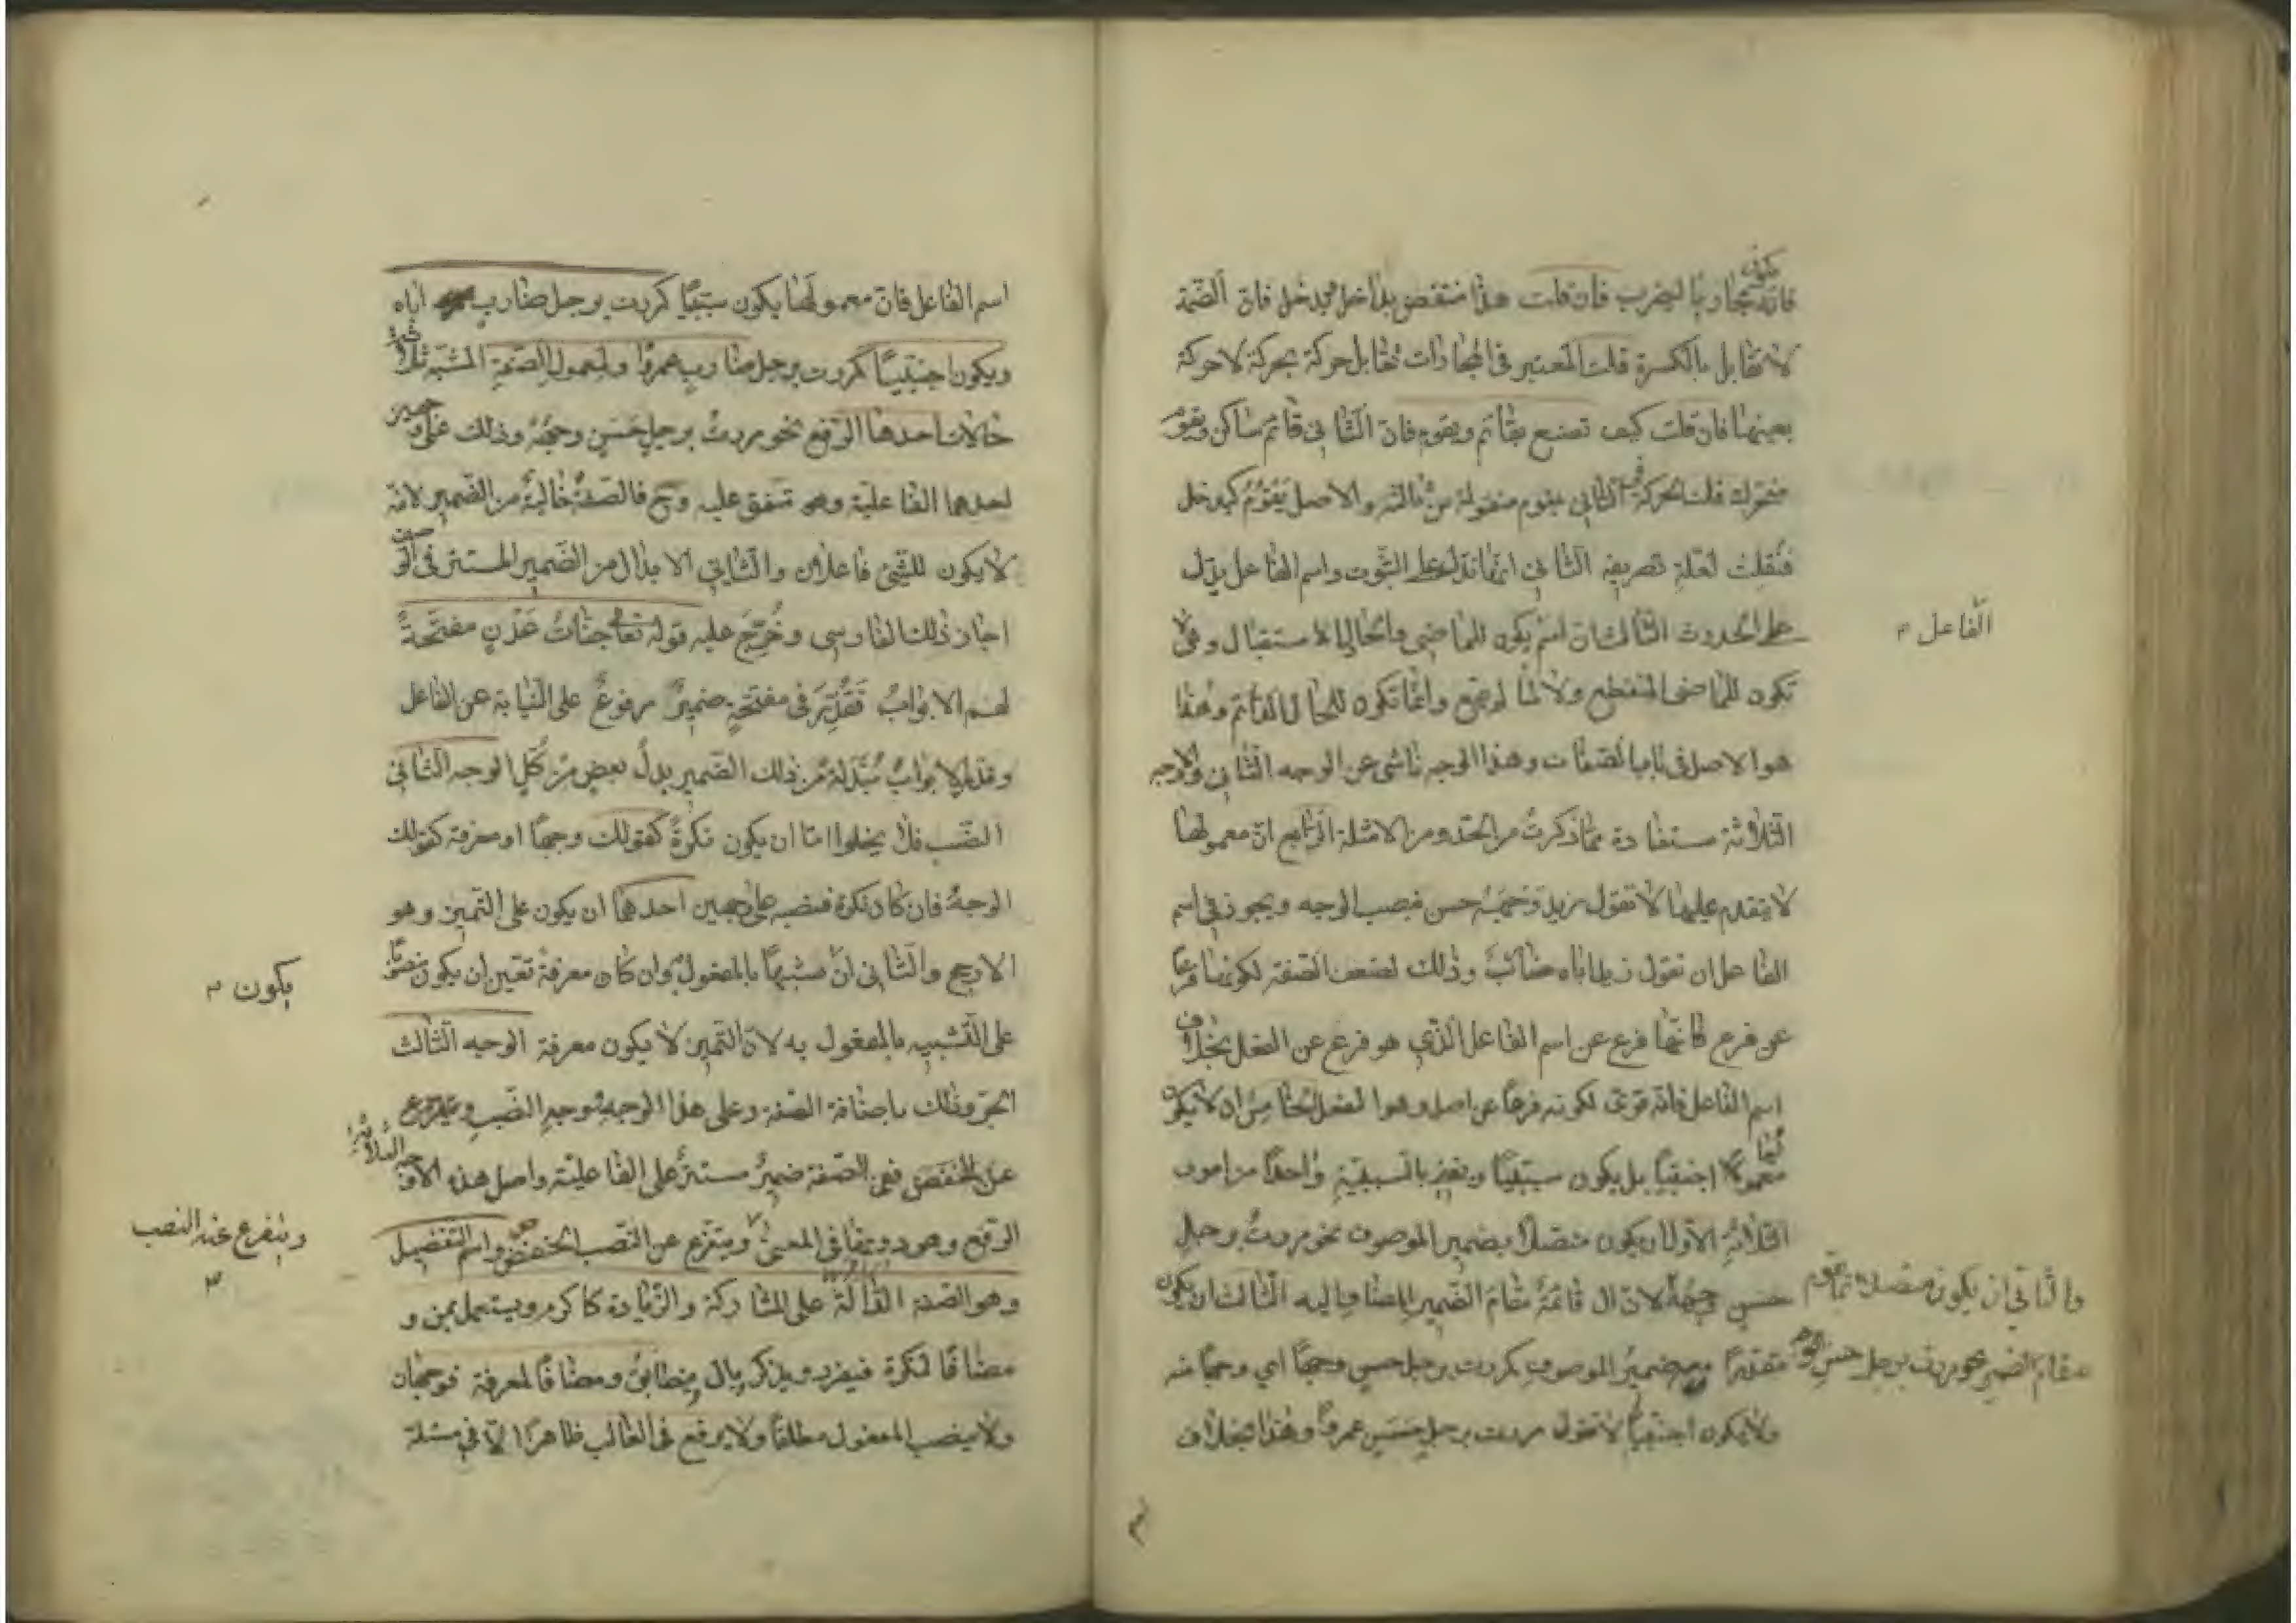 فانه يكون مجاريا ليضرب فان قلت هذا منتقض بداخل ويدخل فان الضمة
لا تقابل بالكسرة قلت المعتبر في المجارات تقابل حركة بحركة لا حركة
بعينها فان قلت كيف تصنع بقائم ويقوم فان الثاني قائم ساكن ويقوم
متحرك قلت الحركة في الثاني يقوم منقولة من ثالثه والاصل يَقْوُمُ كيدخل
فنقلت لعلة تصريفية الثاني انها تدل على الثبوت واسم الفاعل يدل
على الحدوث الثالث ان اسم يكون للماضي والحال والاستقبال وهي لا
الفاعل
تكون للماضي المنقطع ولا لما لم يقع وانما تكون للحال الدائم وهذا
هو الاصل في باب الصفات وهذا الوجه ناشى عن الوجه الثاني والاوجه
الثلاثة مستفادة مما ذكرت من الحد ومن الامثلة الرابع ان معمولها
لا يتقدم عليها لا تقول زيد وجهه حسن بنصب الوجه ويجوز في اسم
الفاعل ان تقول زيد اباه ضارب وذلك لضعف الصفة لكونها فرعا
عن فرع فانها فرع عن اسم الفاعل الذي هو فرع عن الفعل بخلاف
اسم الفاعل فانه قوى لكونه فرعا عن اصل وهو الفعل الخامس ان لا يكون
معمولها اجنبيا بل يكون سببيا ونعني بالسببية واحدا من امور
الثلاثة الاول ان يكون متصلا بضمير الموصوف نحو مررت برجل
حسن وجهه لان ال قائمة مقام الضمير المضاف اليه الثالث ان يكون
والثاني ان يكون متصلا بما يقوم
مقام الضمير نحو مررت برجل حسن الوجه
مقدرا معه ضمير الموصوف كمررت برجل حسن وجها اي وجها منه
ولا يكون اجنبيا لا تقول مررت برجل حسن عمرو وهذا بخلاف
اسم الفاعل فان معمولها يكون سببيا كمررت برجل ضارب اباه
ويكون اجنبيا كمررت برجل ضارب عمروا ولمعمول الصفة المشبهة ثلاثة
حالات احدها الرفع نحو مررت برجل حسن وجهه وذلك على وجهين
احدهما الفاعلية وهو متفق عليه وح فالصفة خالية من الضمير لانه
لا يكون للشئ فاعلان والثاني الابدال من الضمير المستتر في الوصف
اجاز ذلك الفارسي وخرج عليه قوله تعالى جنات عدن مفتحة
لهم الابواب فقدر في مفتحة ضمير مرفوع على النيابة عن الفاعل
وقدر الابواب مبدلة من ذلك الضمير بدل بعض من كل الوجه الثاني
النصب فلا يخلوا اما ان يكون نكرة كقولك وجها او معرفة كقولك
الوجه فان كان نكرة فنصبه على وجهين احدهما ان يكون على التميز وهو
الارجح والثاني ان مشبها بالمفعول به وان كان معرفة تعين ان يكون منصوبا
يكون
على التشبيه بالمفعول به لان التميز لا يكون معرفة الوجه الثالث
الجر وذلك باضافة الصفة وعلى هذا الوجه ووجه النصب
ففي الصفة ضمير مستتر على الفاعلية واصل هذه الاوجه الثلاثة
الرفع وهو دونهما في المعنى ويتفرع عن النصب الخفض واسم التفضيل
ويتفرع عنه النصب
وهو الصفة الدالة على المشاركة والزيادة كاكرم ويستعمل بمن و
مضافا لنكرة فيفرد ويذكر وبال فيطابق ومضافا لمعرفة فوجهان
ولا ينصب المفعول مطلقا ولا يرفع في الغالب ظاهرا الا في مسئلة